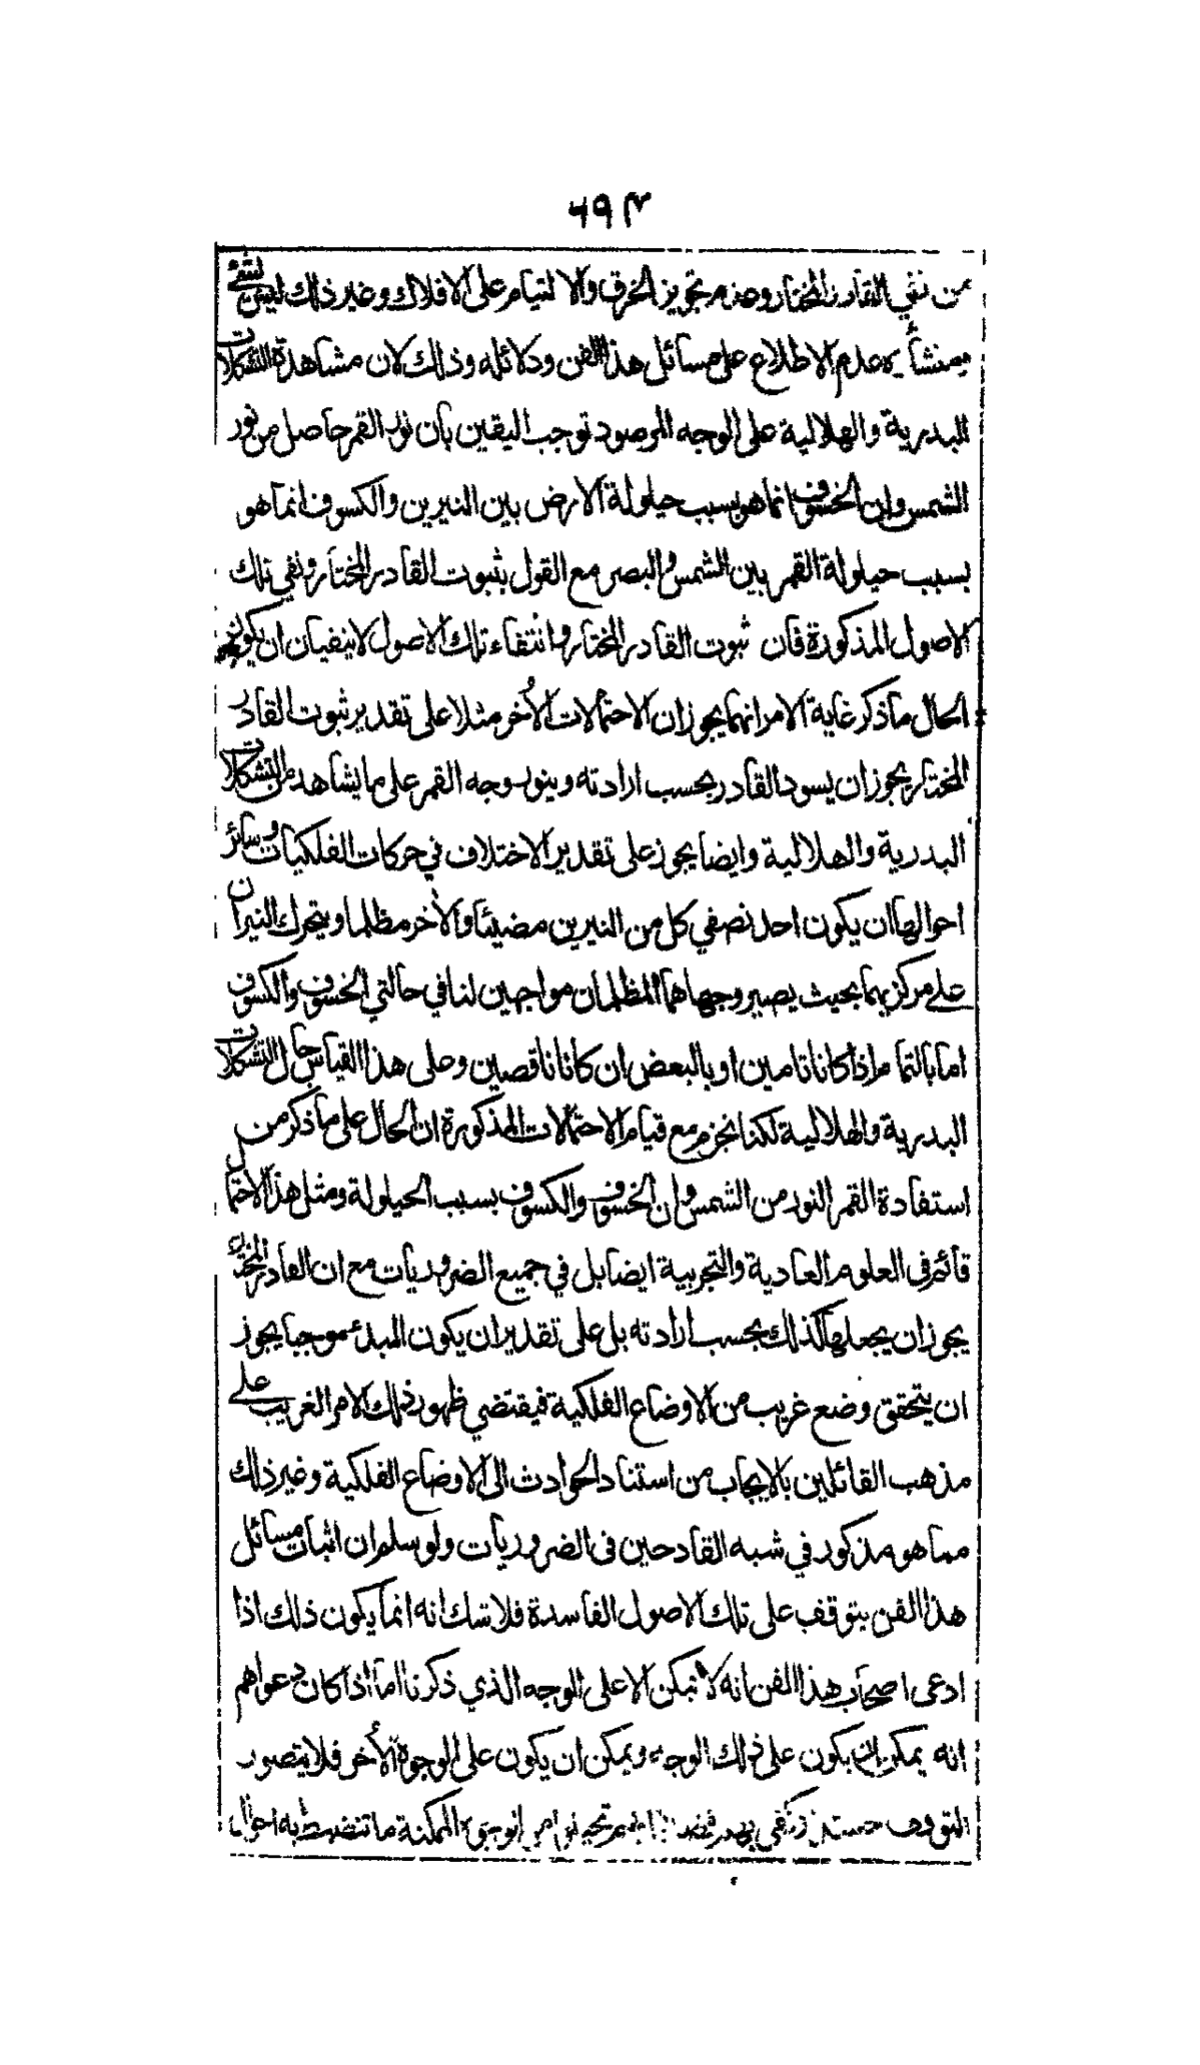 ٦٩٣
من نفي القادر المختار وعدم تجويز الخرق والالتيام على الافلاك وغير ذلك ليس بشئ
منشأه عدم الاطلاع على مسائل هذا الفن ودلائله وذلك لان مشاهدة التشكلات
البدرية والهلالية على الوجه المرصود توجب اليقين بان نور القمر حاصل من نور
الشمس وان الخسوف انما هو بسبب حيلولة الارض بين النيرين والكسوف انما هو
بسبب حيلولة القمر بين الشمس والبصر مع القول بثبوت القادر المختار ونفي تلك
الاصول المذكورة فان ثبوت القادر المختار وانتفاء تلك الاصول لا ينفيان ان يكون
الحال ما ذكر غاية الامر انهما يجوزان الاحتمالات الأخر مثلا على تقدير ثبوت القادر
المختار يجوز ان يسود القادر بحسب ارادته وينور وجه القمر على ما يشاهد من التشكلات
البدرية والهلالية وايضا يجوز على تقدير الاختلاف في حركات الفلكيات وسائر
احوالها ان يكون احد نصفي كل من النيرين مضيئا والأخر مظلما ويتحرك النيران
على مركزيهما بحيث يصير وجهاهما المظلمان مواجهين لنا في حالتي الخسوف والكسوف
اما بالتمام اذا كانا تامين او بالبعض ان كانا ناقصين وعلى هذا القياس حال التشكلات
البدرية والهلالية لكنا نجزم مع قيام الاحتمالات المذكورة ان الحال على ما ذكر من
استفادة القمر النور من الشمس وان الخسوف والكسوف بسبب الحيلولة ومثل هذا الاحتمال
قائم في العلوم العادية والتجربية ايضا بل في جميع الضروريات مع ان القادر المختار
يجوز ان يجعلها كذلك بحسب ارادته بل على تقدير ان يكون المبدء موجبا يجوز
ان يتحقق وضع غريب من الاوضاع الفلكية فيقتضي ظهور ذلك الامر الغريب على
مذهب القائلين بالايجاب من استناد الحوادث الى الاوضاع الفلكية وغير ذلك
مما هو مذكور في شبه القادحين في الضروريات ولو سلم ان اثبات مسائل
هذا الفن يتوقف على تلك الاصول الفاسدة فلا شك انه انما يكون ذلك اذا
ادعى اصحاب هذا الفن انه لا يمكن الا على الوجه الذي ذكرنا اما اذا كان دعواهم
انه يمكن ان يكون على ذلك الوجه ويمكن ان يكون على الوجوه الأخر فلا يتصور
التوقف حينئذ وكفى بهم فضلا انهم تخيلوا من الوجوه الممكنة ما تنضبط به احوال